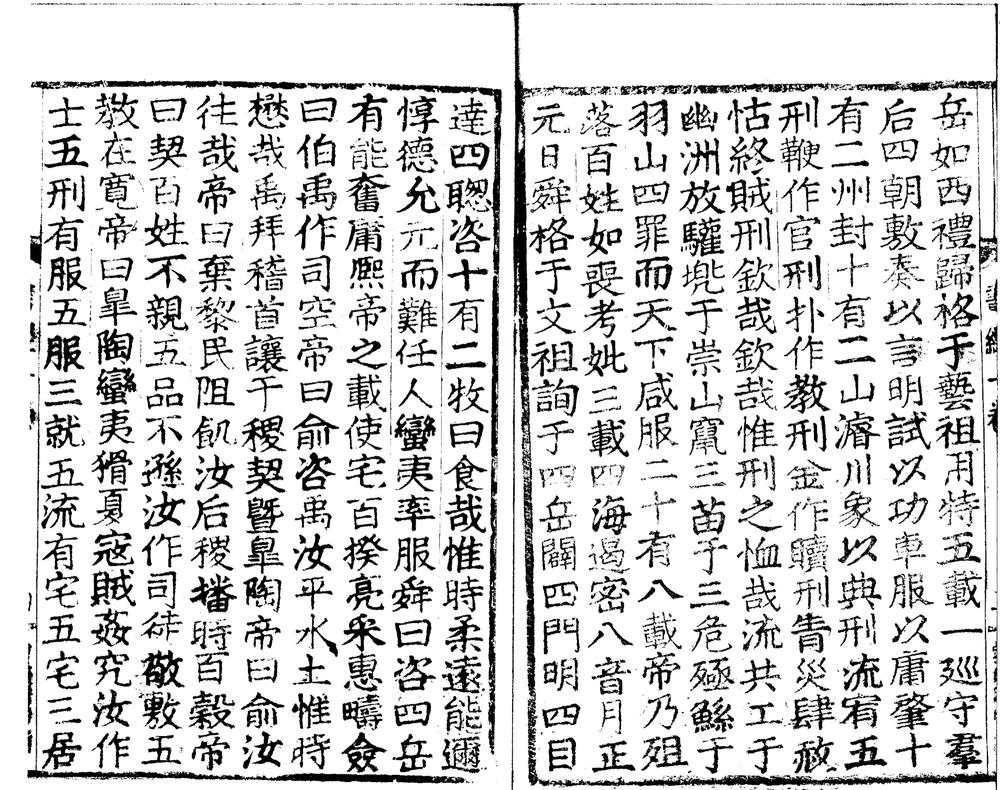 岳如西禮歸格于藝祖用特五載一廵守羣
后四朝敷奏以言明試以功車服以庸肇十
有二州封十有二山濬川象以典刑流宥五
刑鞭作官刑扑作教刑金作贖刑眚災肆赦
怙終賊刑欽哉欽哉惟刑之恤哉流共工于
幽洲放驩兠于崇山竄三苗于三危殛鯀于
羽山四罪而天下咸服二十有八載帝乃殂
落百姓如喪考妣三載四海遏密八音月正
元日舜格于文祖詢于四岳闢四門明四目
達四聦咨十有二牧曰食哉惟時柔遠能邇
惇德允元而難任人蠻夷率服舜曰咨四岳
有能奮庸熈帝之載使宅百揆亮采惠疇僉
曰伯禹作司空帝曰俞咨禹汝平水土惟時
懋哉禹拜稽首讓于稷契曁皐陶帝曰俞汝
往哉帝曰棄黎民阻飢汝后稷播時百穀帝
曰契百姓不親五品不遜汝作司徒敬敷五
教在寬帝曰皐陶蠻夷猾夏寇賊姦宄汝作
士五刑有服五服三就五流有宅五宅三居